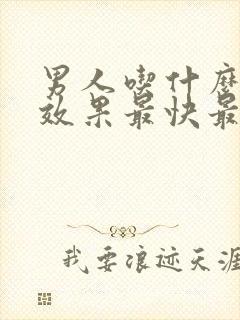 男人喫什麼
效果最快最
我要浪迹天涯